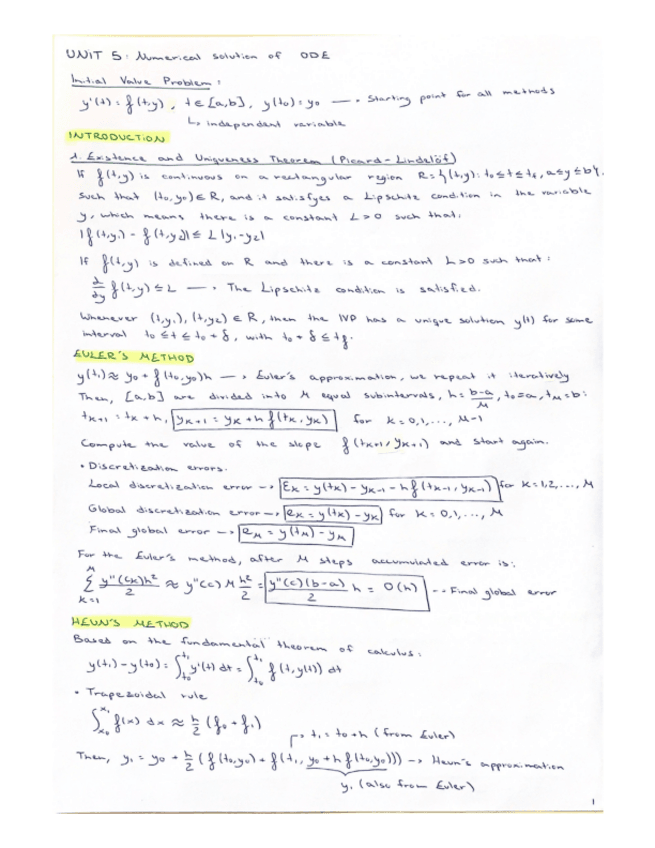 UNIT 5: Numerical solution of ODE
Initial Value Problem:
y'(t) = f(t,y), t ∈ [a,b], y(t₀) = y₀ —→ Starting point for all methods
↳ independent variable
INTRODUCTION
1. Existence and Uniqueness Theorem (Picard-Lindelöf)
If f(t,y) is continuous on a rectangular region R = {(t,y): t₀ ≤ t ≤ t_f, a ≤ y ≤ b},
such that (t₀,y₀) ∈ R, and it satisfyes a Lipschitz condition in the variable
y, which means there is a constant L>0 such that,
|f(t,y₁) - f(t,y₂)| ≤ L |y₁-y₂|
If f(t,y) is defined on R and there is a constant L>0 such that:
∂/∂y f(t,y) ≤ L —→ The Lipschitz condition is satisfied.
Whenever (t,y₁), (t,y₂) ∈ R, then the IVP has a unique solution y(t) for some
interval t₀ ≤ t ≤ t₀ + δ, with t₀ + δ ≤ t_f.
EULER'S METHOD
y(t₁) ≈ y₀ + f(t₀,y₀)h —→ Euler's approximation, we repeat it iteratively
Then, [a,b] are divided into M equal subintervals, h = (b-a)/M, t₀=a, t_M=b:
t_{K+1} = t_K + h, y_{K+1} = y_K + h f(t_K, y_K) for K=0,1,..., M-1
Compute the value of the slope f(t_{K+1}, y_{K+1}) and start again.
• Discretization errors.
Local discretization error —→ ε_K = y(t_K) - y_{K-1} - h f(t_{K-1}, y_{K-1}) for K=1,2,..., M
Global discretization error —→ e_K = y(t_K) - y_K for K=0,1,..., M
Final global error —→ e_M = y(t_M) - y_M
For the Euler's method, after M steps accumulated error is:
∑_{K=1}^{M} y''(c_K)h²/2 ≈ y''(c) M h²/2 = y''(c)(b-a)/2 h = O(h) -→ Final global error
HEUN'S METHOD
Based on the fundamental theorem of calculus:
y(t₁) - y(t₀) = ∫_{t₀}^{t₁} y'(t) dt = ∫_{t₀}^{t₁} f(t,y(t)) dt
• Trapezoidal rule
∫_{x₀}^{x₁} f(x) dx ≈ h/2 (f₀ + f₁)
↱ t₁ = t₀+h (from Euler)
Then, y₁ = y₀ + h/2 (f(t₀,y₀) + f(t₁, y₀+h f(t₀,y₀))) —→ Heun's approximation
y₁ (also from Euler)
1